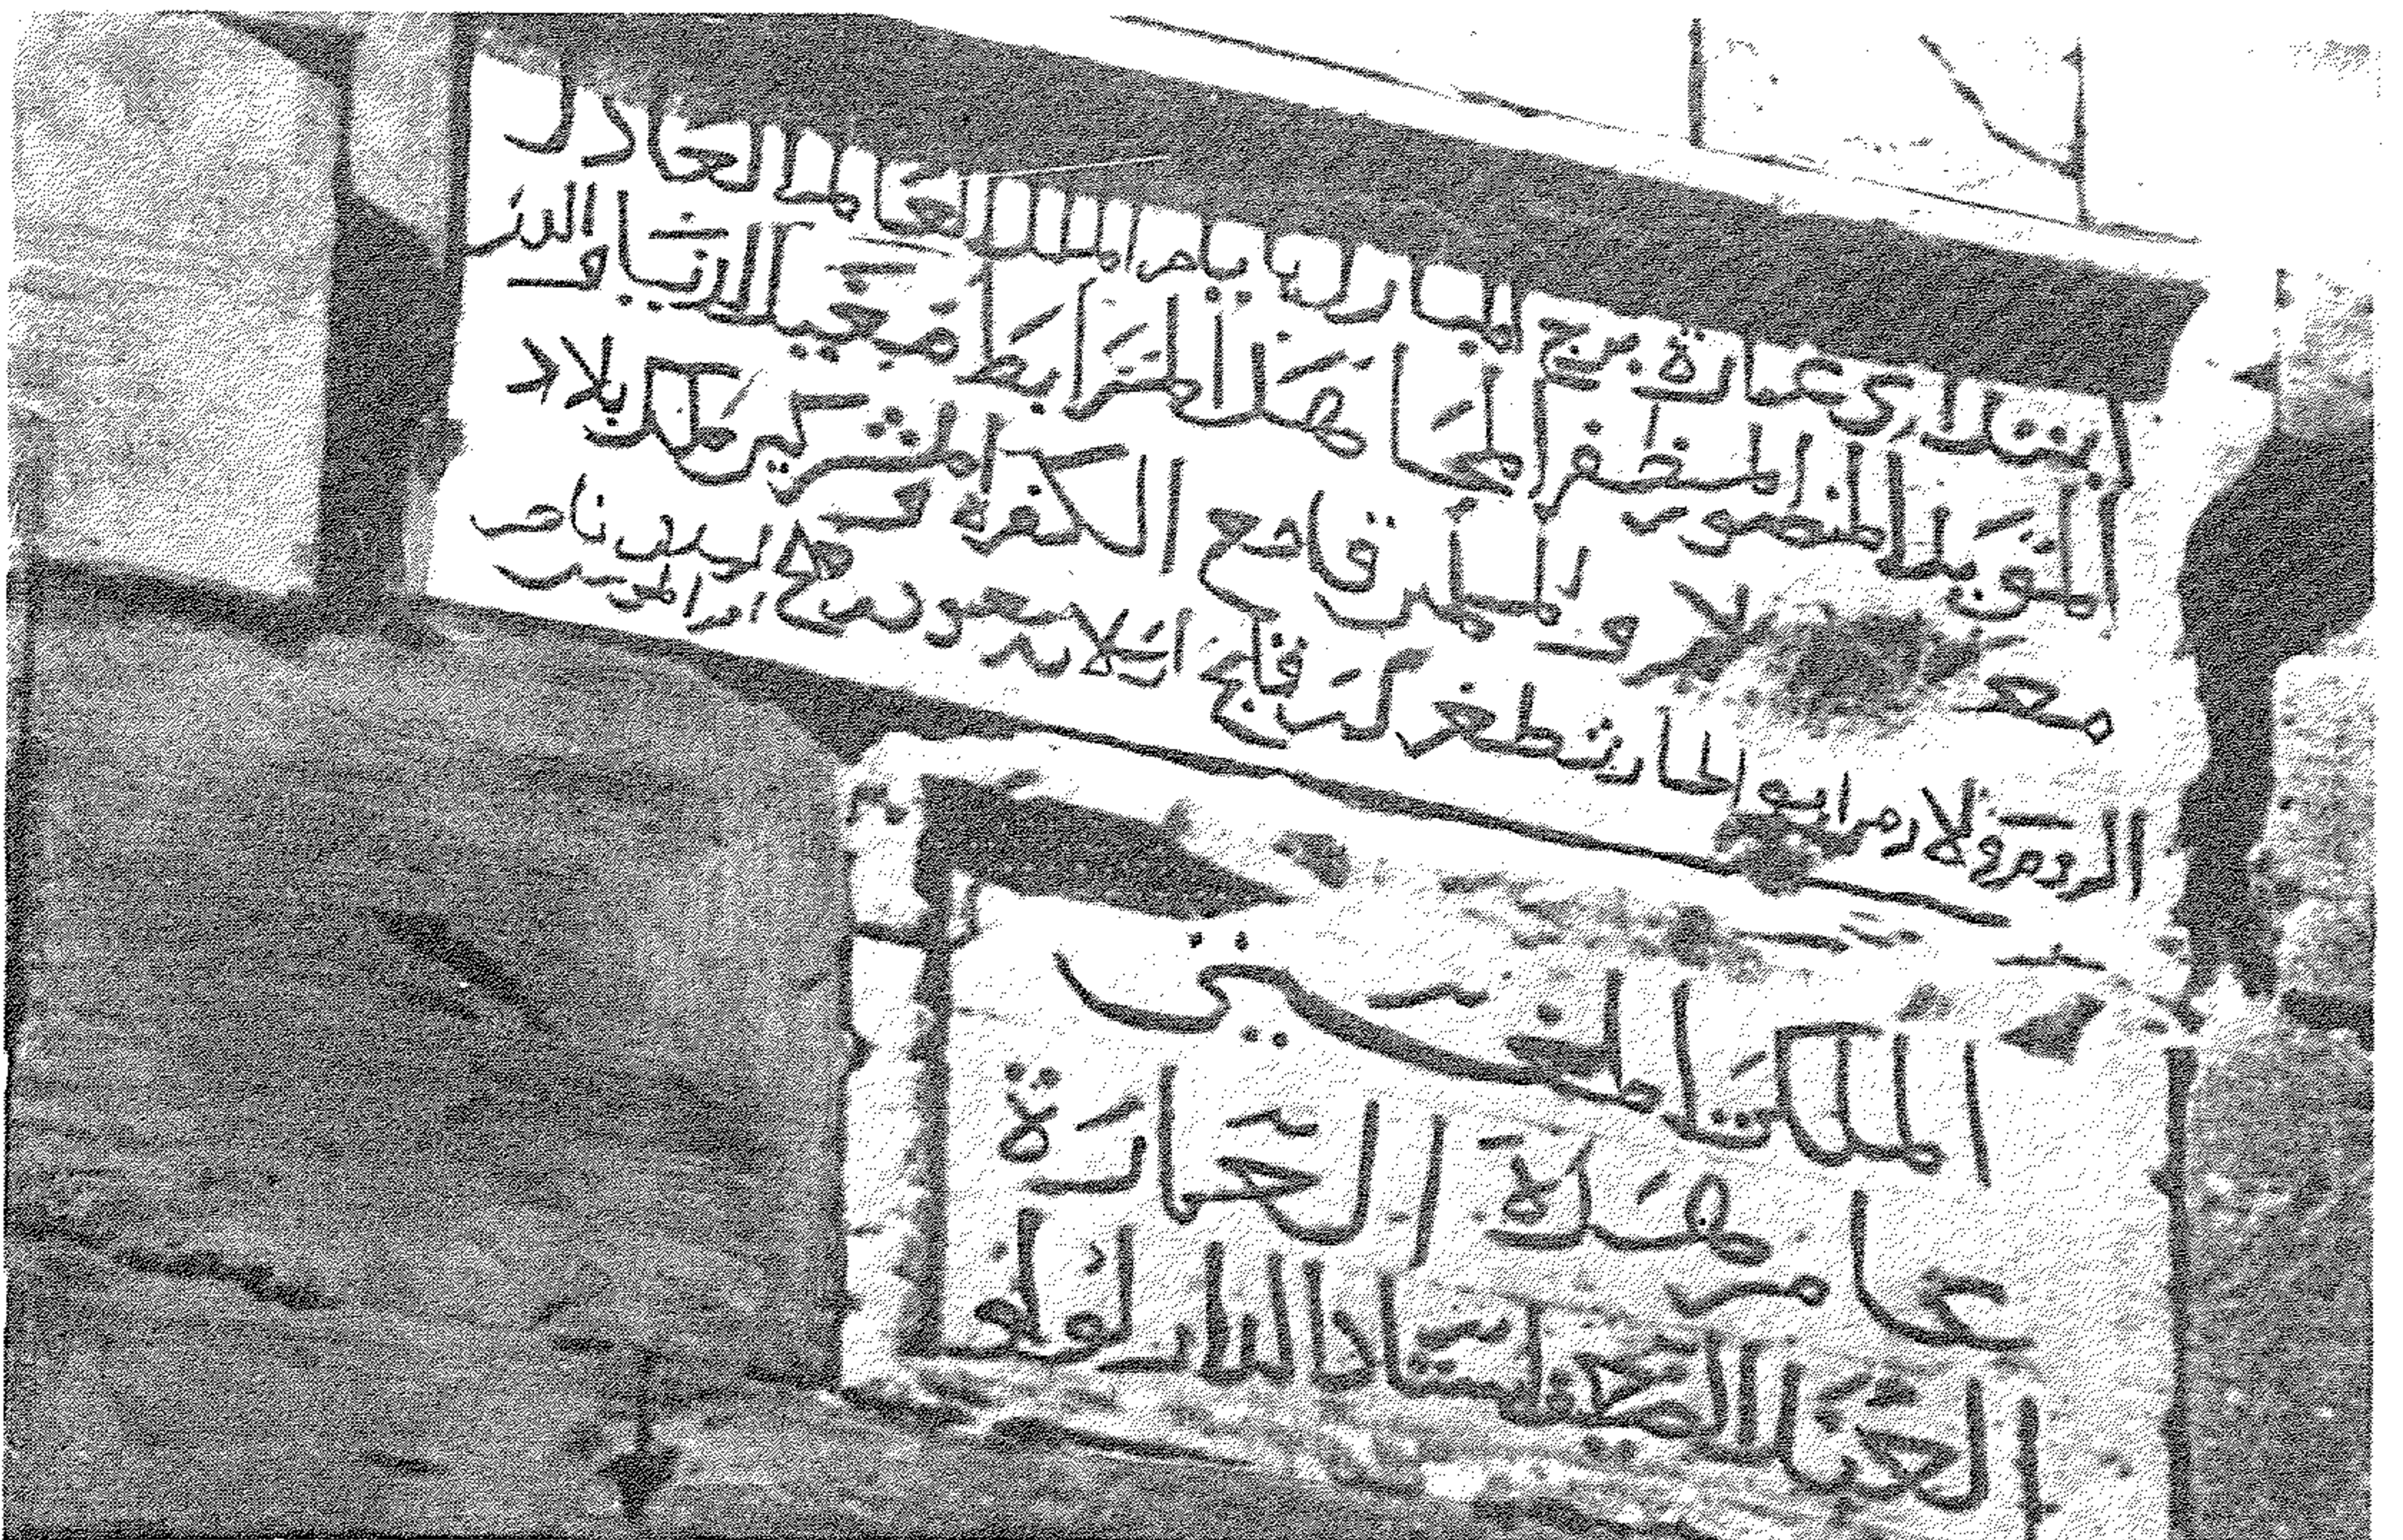 ابتدا في عمارة برج المبارك بايام الملك العالم العادل
المؤيد المنصور المظفر المجاهد المرابط مغيث الدنيا والدين
معز الاسلام والمسلمين قامع الكفرة والمشركين طغرل بلاد
الروم والارمن ابو الحارث طغرلشاه بن قلج ارسلان بن مسعود بن قلج ارسلان ناصر امير المؤمنين
الملكى المغيثى
عامر هذه العمارة
العبد الضعيف استاد الدار لولو